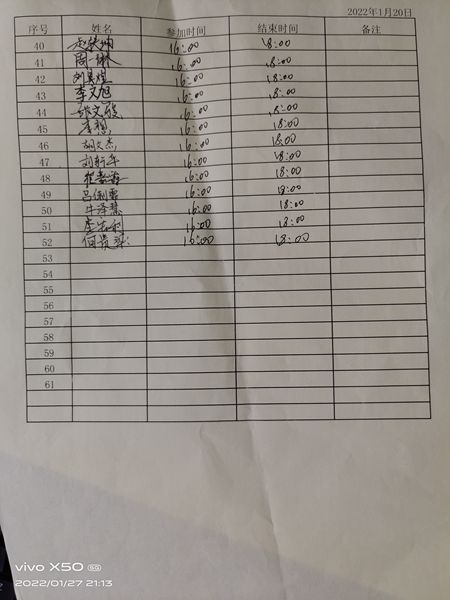 2022年1月20日
序号 姓名 参加时间 结束时间 备注
40 16:00 18:00
41 周琳 16:00 18:00
42 刘昊煜 16:00 18:00
43 李文旭 16:00 18:00
44 张文骏 16:00 18:00
45 16:00 18:00
46 胡文杰 16:00 18:00
47 刘新年 16:00 18:00
48 16:00 18:00
49 16:00 18:00
50 牛泽慧 16:00 18:00
51 16:00 18:00
52 16:00 18:00
53
54
55
56
57
58
59
60
61
vivo X50 5G
2022/01/27 21:13